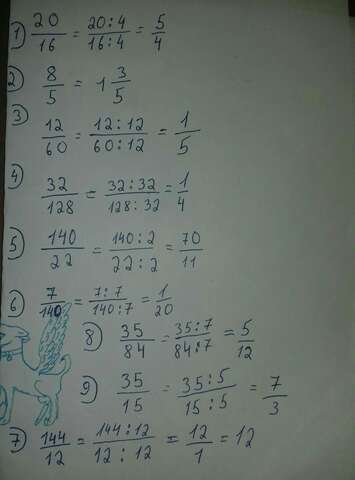 1) 20/16 = 20:4/16:4 = 5/4
2) 8/5 = 1 3/5
3) 12/60 = 12:12/60:12 = 1/5
4) 32/128 = 32:32/128:32 = 1/4
5) 140/22 = 140:2/22:2 = 70/11
6) 7/140 = 7:7/140:7 = 1/20
8) 35/84 = 35:7/84:7 = 5/12
9) 35/15 = 35:5/15:5 = 7/3
7) 144/12 = 144:12/12:12 = 12/1 = 12